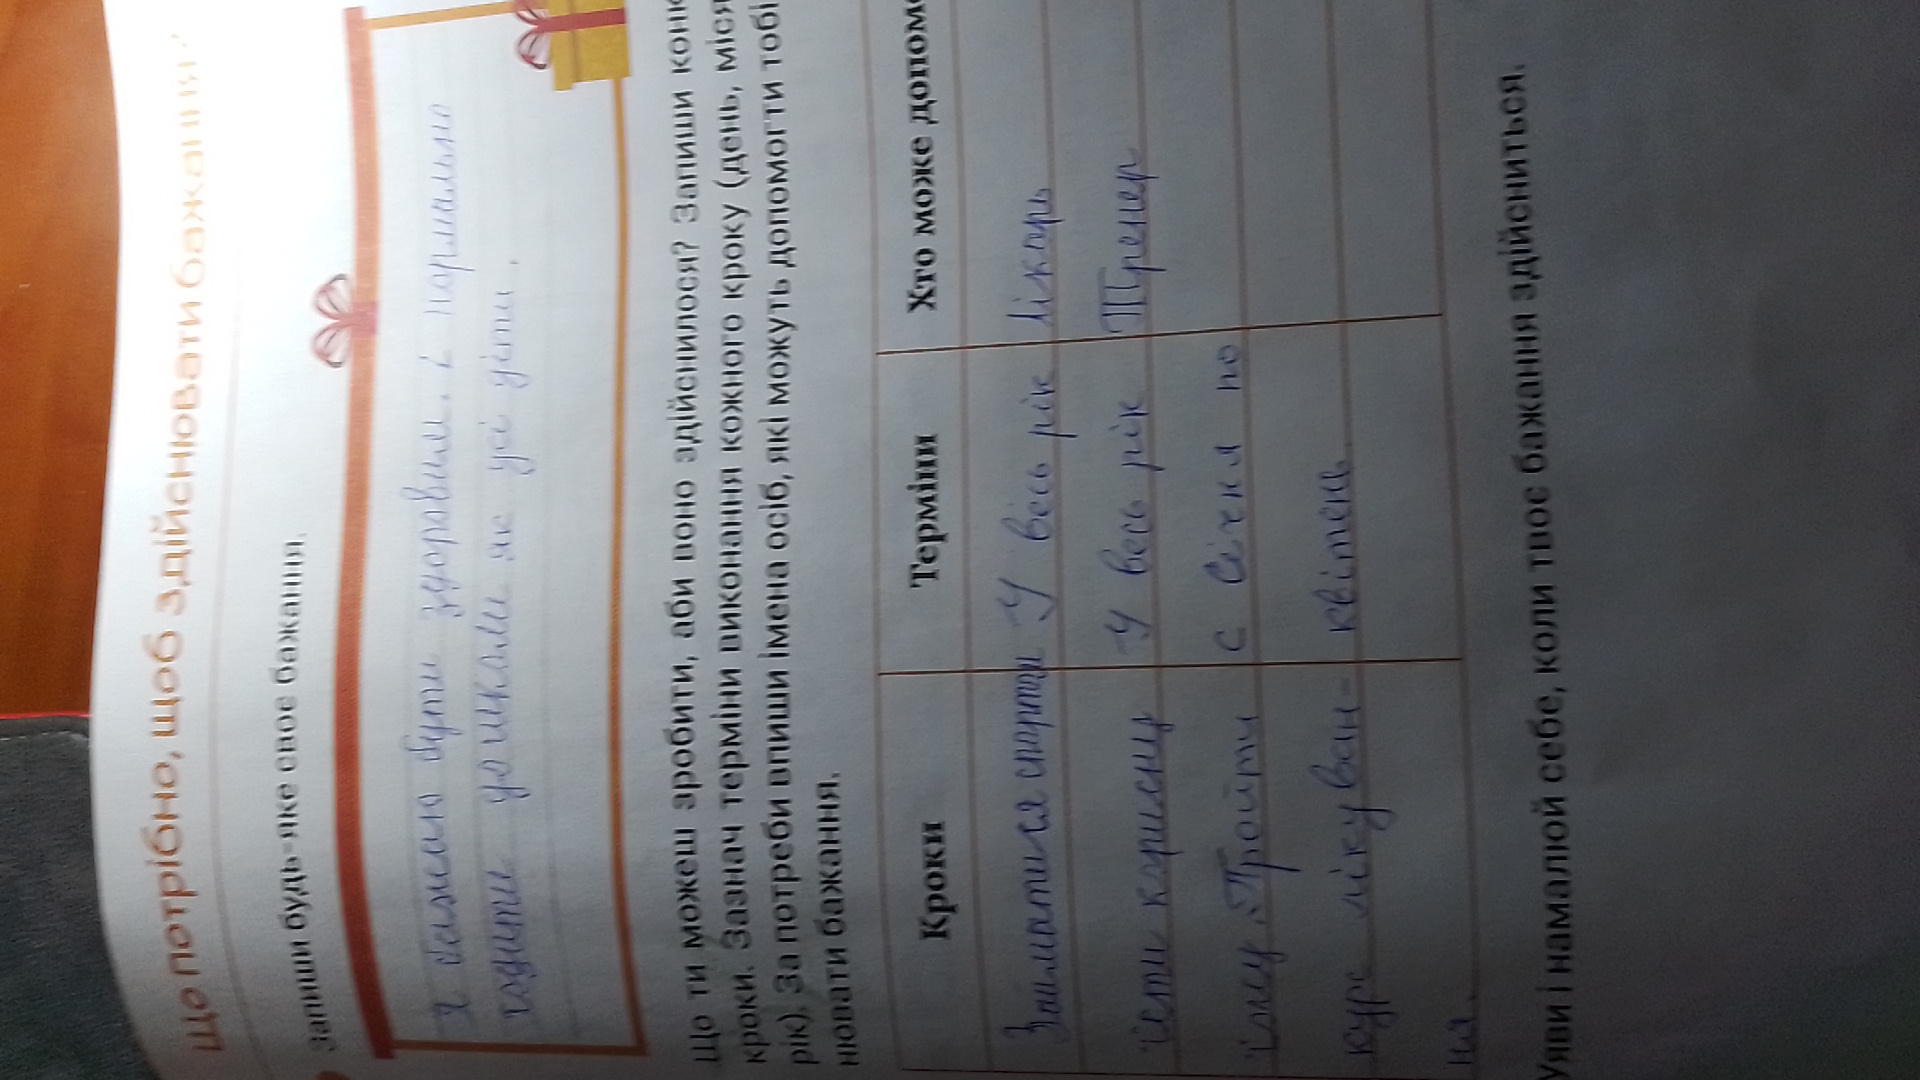 Що потрібно, щоб здійснювати бажання?
Запиши будь-яке своє бажання.
Я бажаю бути здоровим. і нормально
ходити до школи як усі діти.
Що ти можеш зробити, аби воно здійснилося? Запиши конк
кроки. Зазнач терміни виконання кожного кроку (день, міся
рік). За потреби впиши імена осіб, які можуть допомогти тобі
нювати бажання.
Кроки Терміни Хто може допомо
Займатися спортом У весь рік лікарь
їсти корисну У весь рік Тренер
їжу. Пройти с Січня по
курс лікуван- квітень
ня.
Уяви і намалюй себе, коли твоє бажання здійсниться.